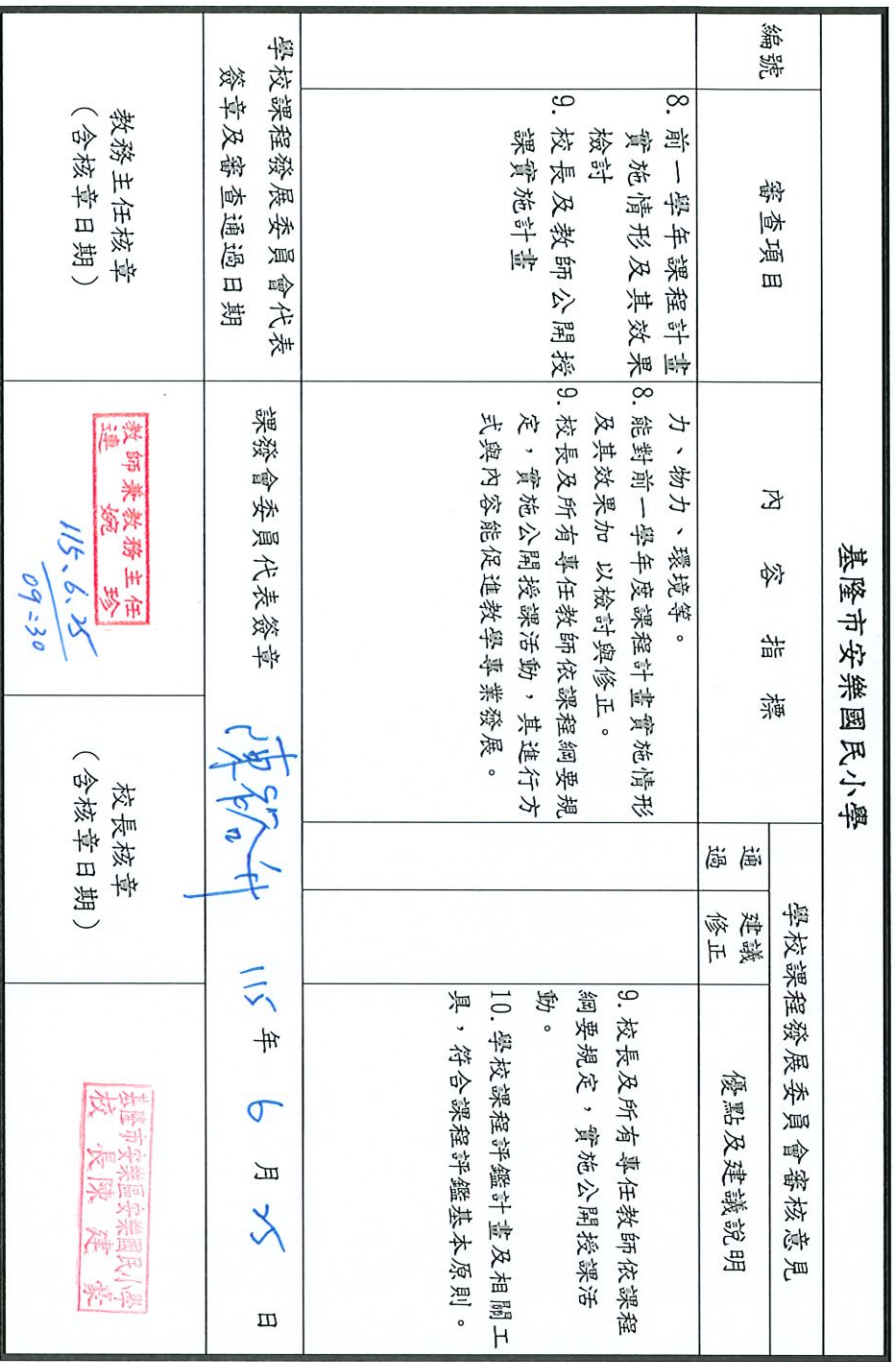 基隆市安樂國民小學
編號
審查項目
內容指標
學校課程發展委員會審核意見
通過
建議修正
優點及建議說明
8. 前一學年課程計畫
實施情形及其效果
檢討
9. 校長及教師公開授
課實施計畫
力、物力、環境等。
8. 能對前一學年度課程計畫實施情形
及其效果加 以檢討與修正。
9. 校長及所有專任教師依課程綱要規
定,實施公開授課活動,其進行方
式與內容能促進教學專業發展。
9. 校長及所有專任教師依課程
綱要規定,實施公開授課活
動。
10. 學校課程評鑑計畫及相關工
具,符合課程評鑑基本原則。
學校課程發展委員會代表
簽章及審查通過日期
課發會委員代表簽章
115 年 6 月 25 日
教務主任核章
(含核章日期)
教師兼教務主任
連婉珍
115.6.25
09:30
校長核章
(含核章日期)
基隆市安樂區安樂國民小學
校長陳建